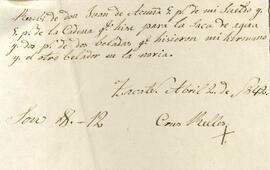 Recibí de don Juan de Acuña 8 ps. de mi Sueldo y.
ps. de la Cadena qe. hise para la saca de agua
y dos ps. de dos beladas qe. hisieron mi hermano
y el otro belador en la noria.
Abril 2. de 1842.
Son 18.-12 Cruz Rellor